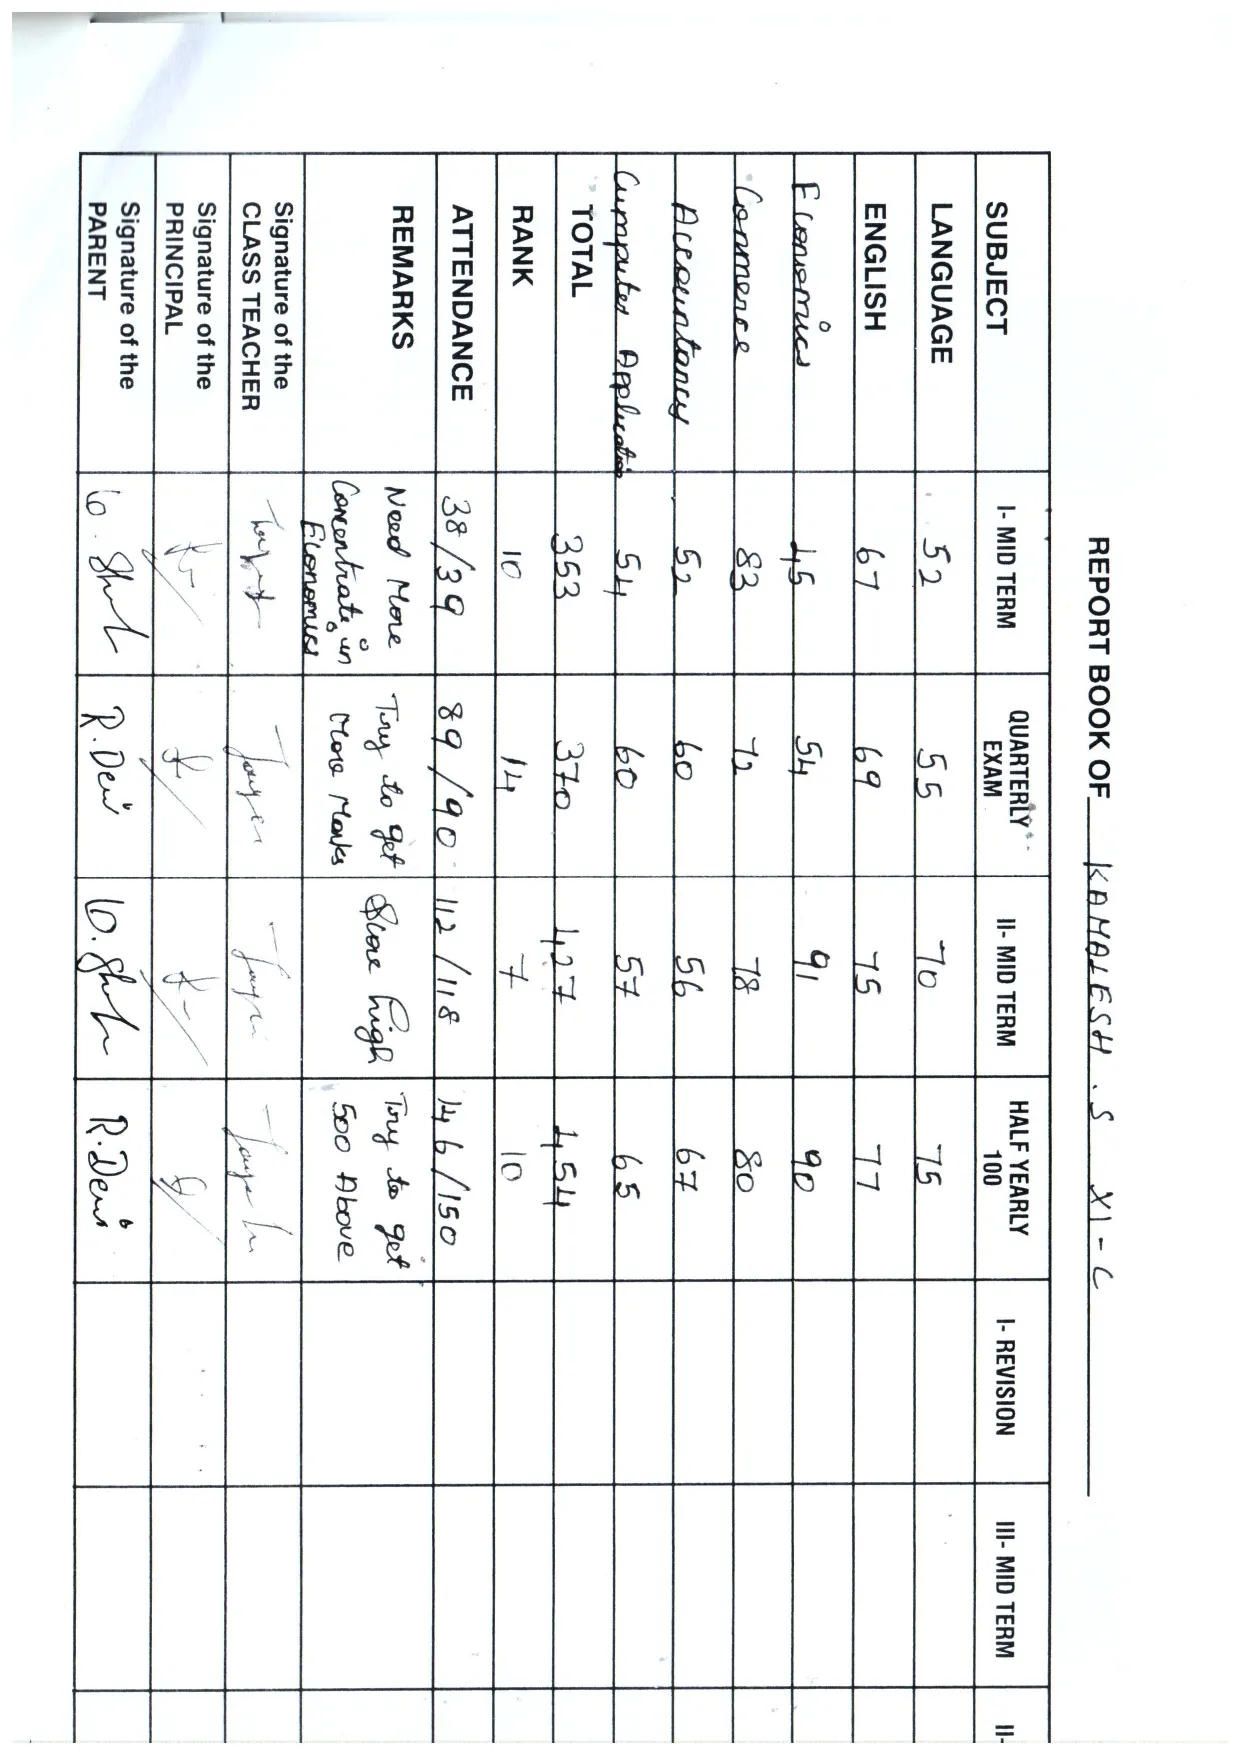 REPORT BOOK OF KAMALESH . S XI - C
SUBJECT I- MID TERM QUARTERLY EXAM II- MID TERM HALF YEARLY 100 I- REVISION III- MID TERM II-
LANGUAGE 52 55 70 75
ENGLISH 67 69 75 77
Economics 45 54 91 90
Commerce 83 72 78 80
Accountancy 52 60 56 67
Computer Application 54 60 57 65
TOTAL 353 370 427 454
RANK 10 14 7 10
ATTENDANCE 38/39 89/90 112/118 146/150
REMARKS Need More Concentrate in Economics Try to get More Marks Score high Try to get 500 Above
Signature of the CLASS TEACHER
Signature of the PRINCIPAL
Signature of the PARENT R. Devi R. Devi